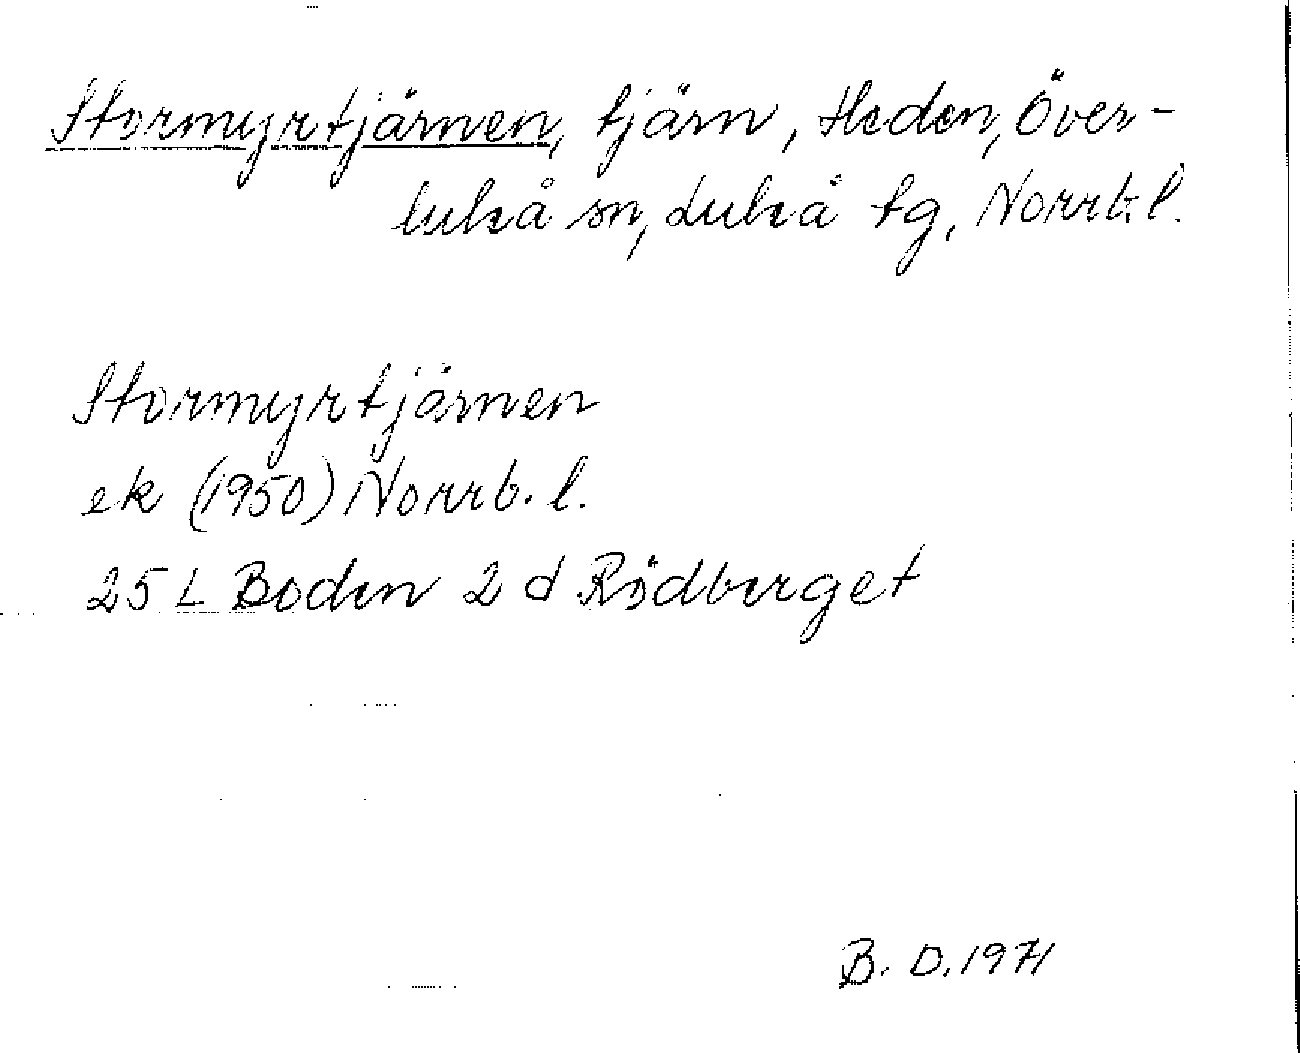 Stormyrtjärnen, tjärn, Heden, Över-
luleå sn, Luleå tg, Norrb. l.
Stormyrtjärnen
ek (1950) Norrb. l.
25 L Boden 2 d Rödberget
B. D. 1971